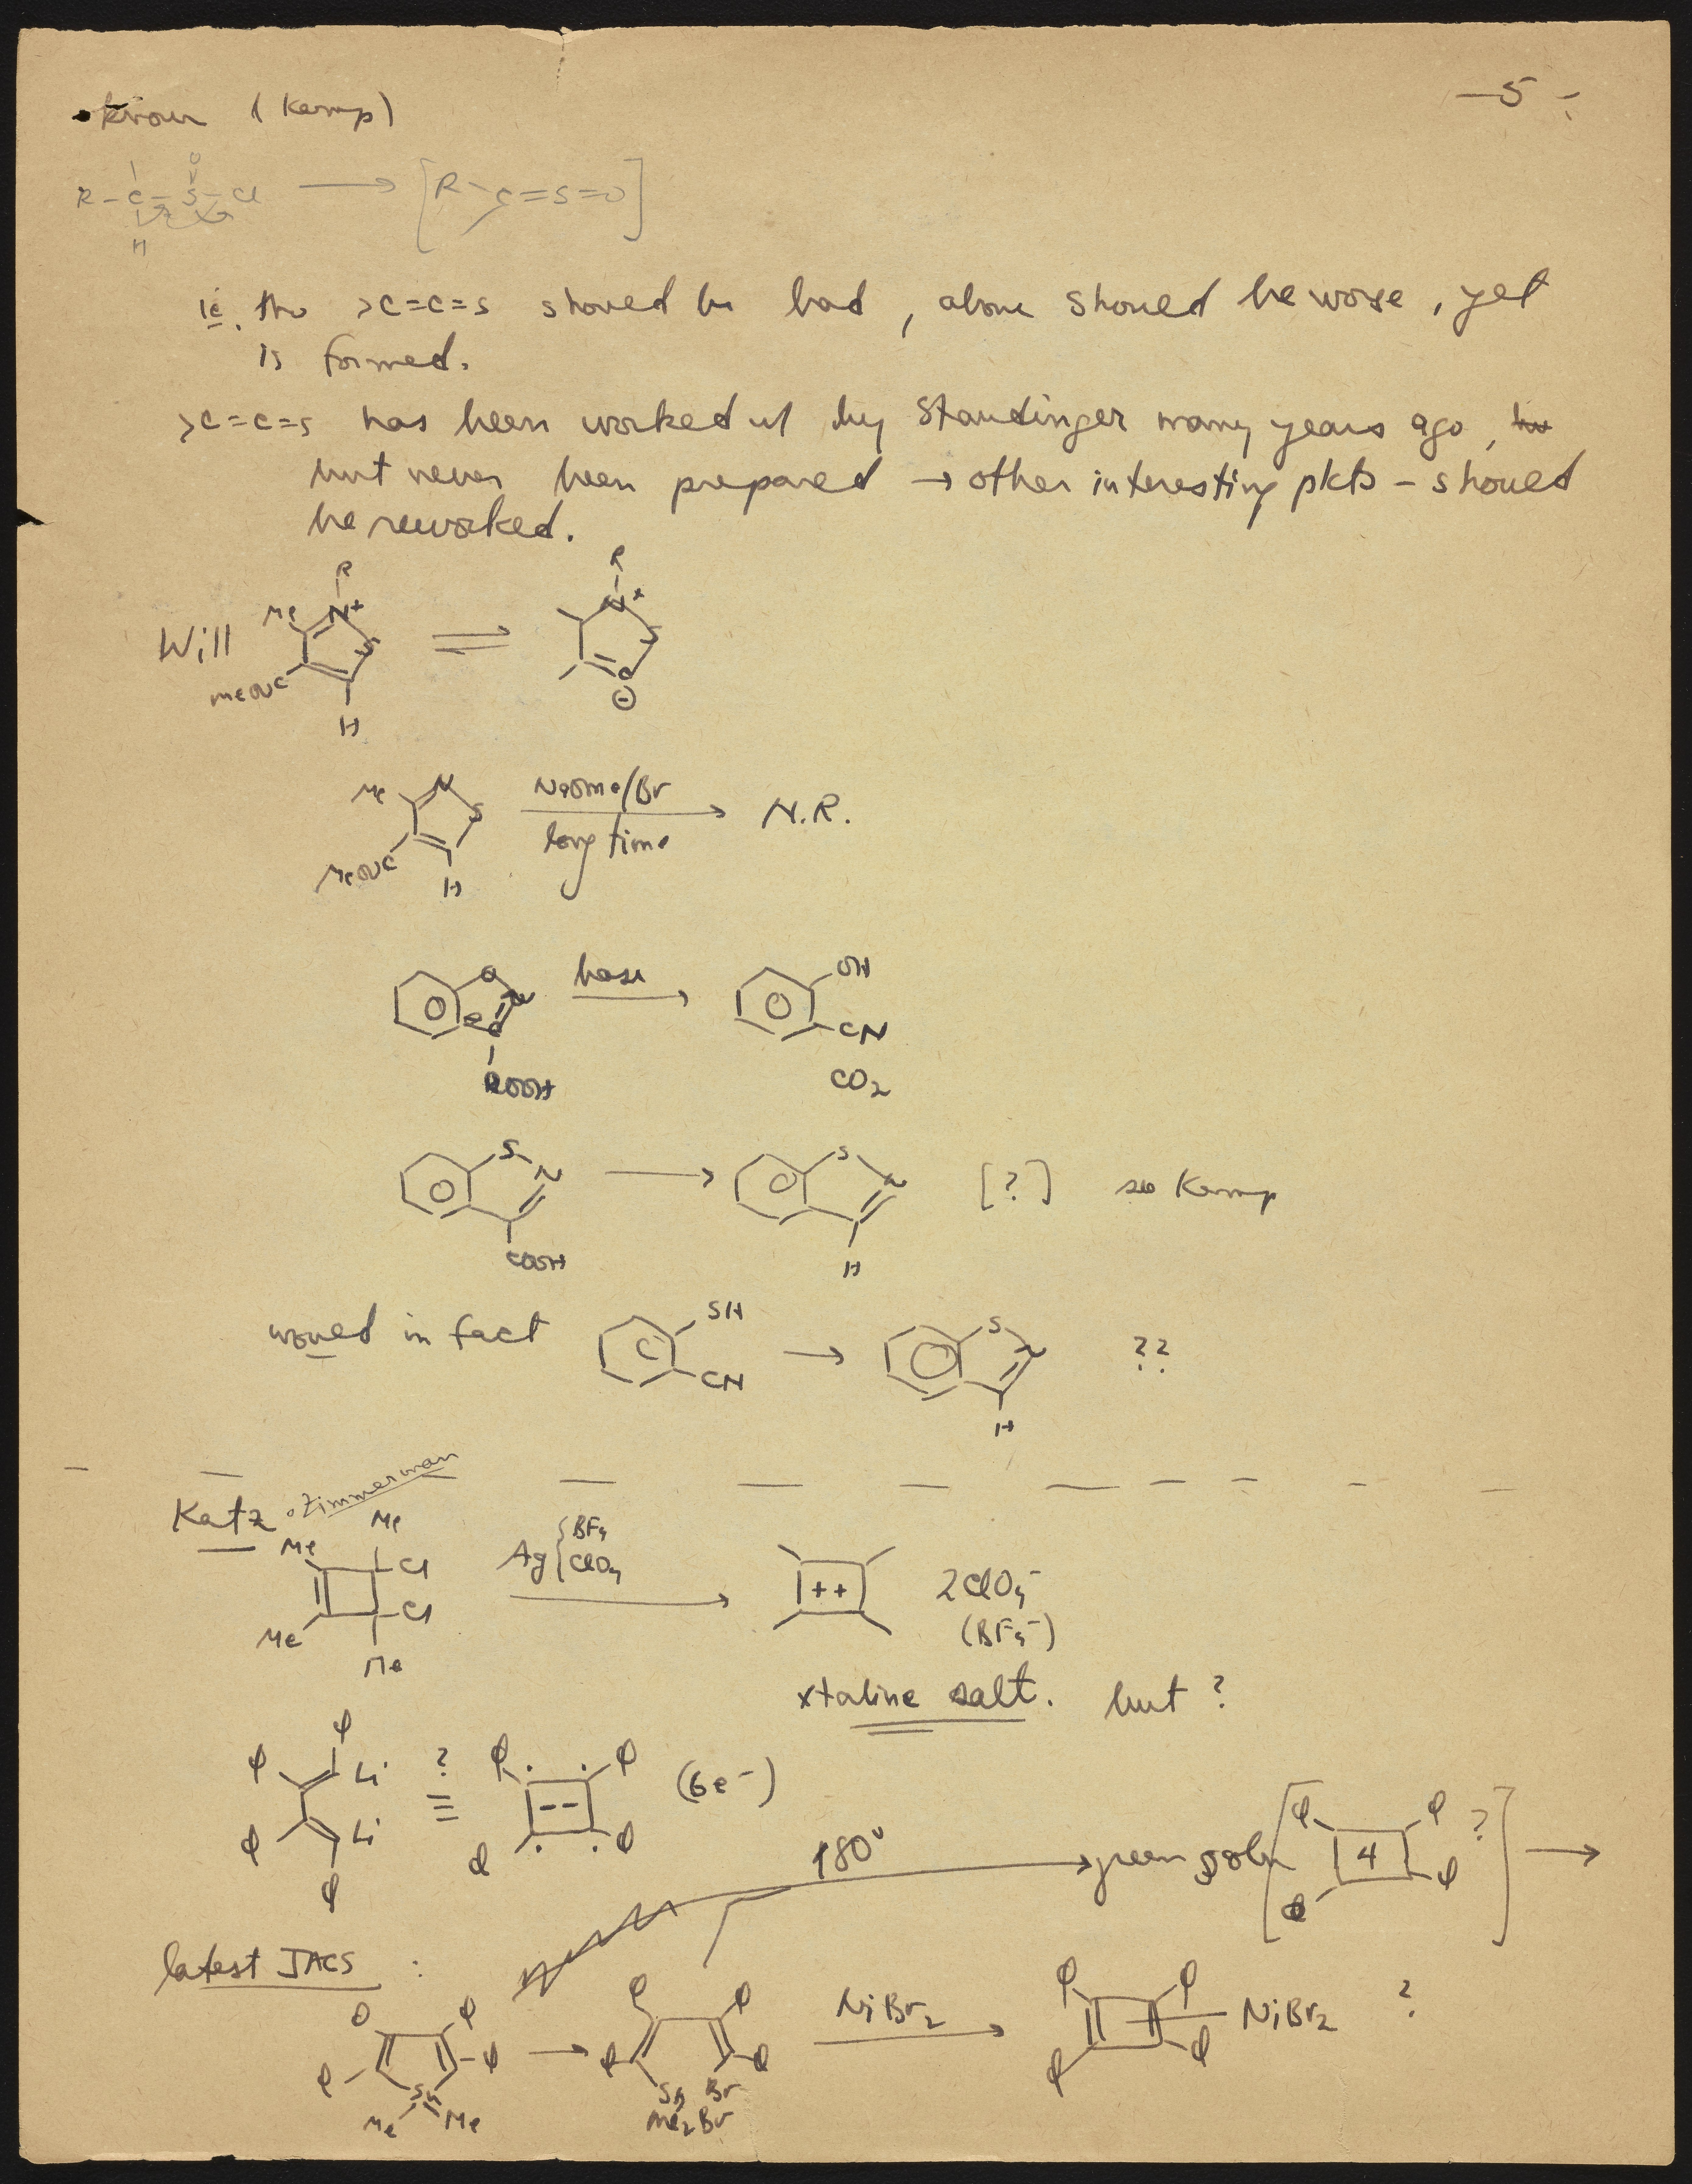 —5—
known (Kemp)
R—C—S—Cl → [R C=S=O]
O
H
ie. tho >C=C=S should be bad, above should be worse, yet
is formed.
>C=C=S has been worked w/ by Staudinger many years ago,
but never been prepared → other interesting pdts – should
be reworked.
R R
Will Me N+ S ⇌ N+ S
MeO2C C ⊖
H
Me N S NaOMe/Br → N.R.
long time
MeO2C H
O N C base → OH
CN
COOH CO2
S N → S N [?] see Kemp
COOH H
would in fact SH → S N ??
CN H
Katz · Zimmerman
Me Me Cl Ag { BF4 ClO4 → ++ 2ClO4-
Me Cl (BF4-)
Me
xtaline salt. but ?
φ φ Li ? ≡ φ φ -- (6e-)
φ Li φ φ
φ
180° → green soln [φ φ 4 φ φ ?] →
latest JACS :
φ φ → φ φ NiBr2 → φ φ NiBr2 ?
φ φ φ φ φ φ
Sn Sn Br
Me Me Me2Br